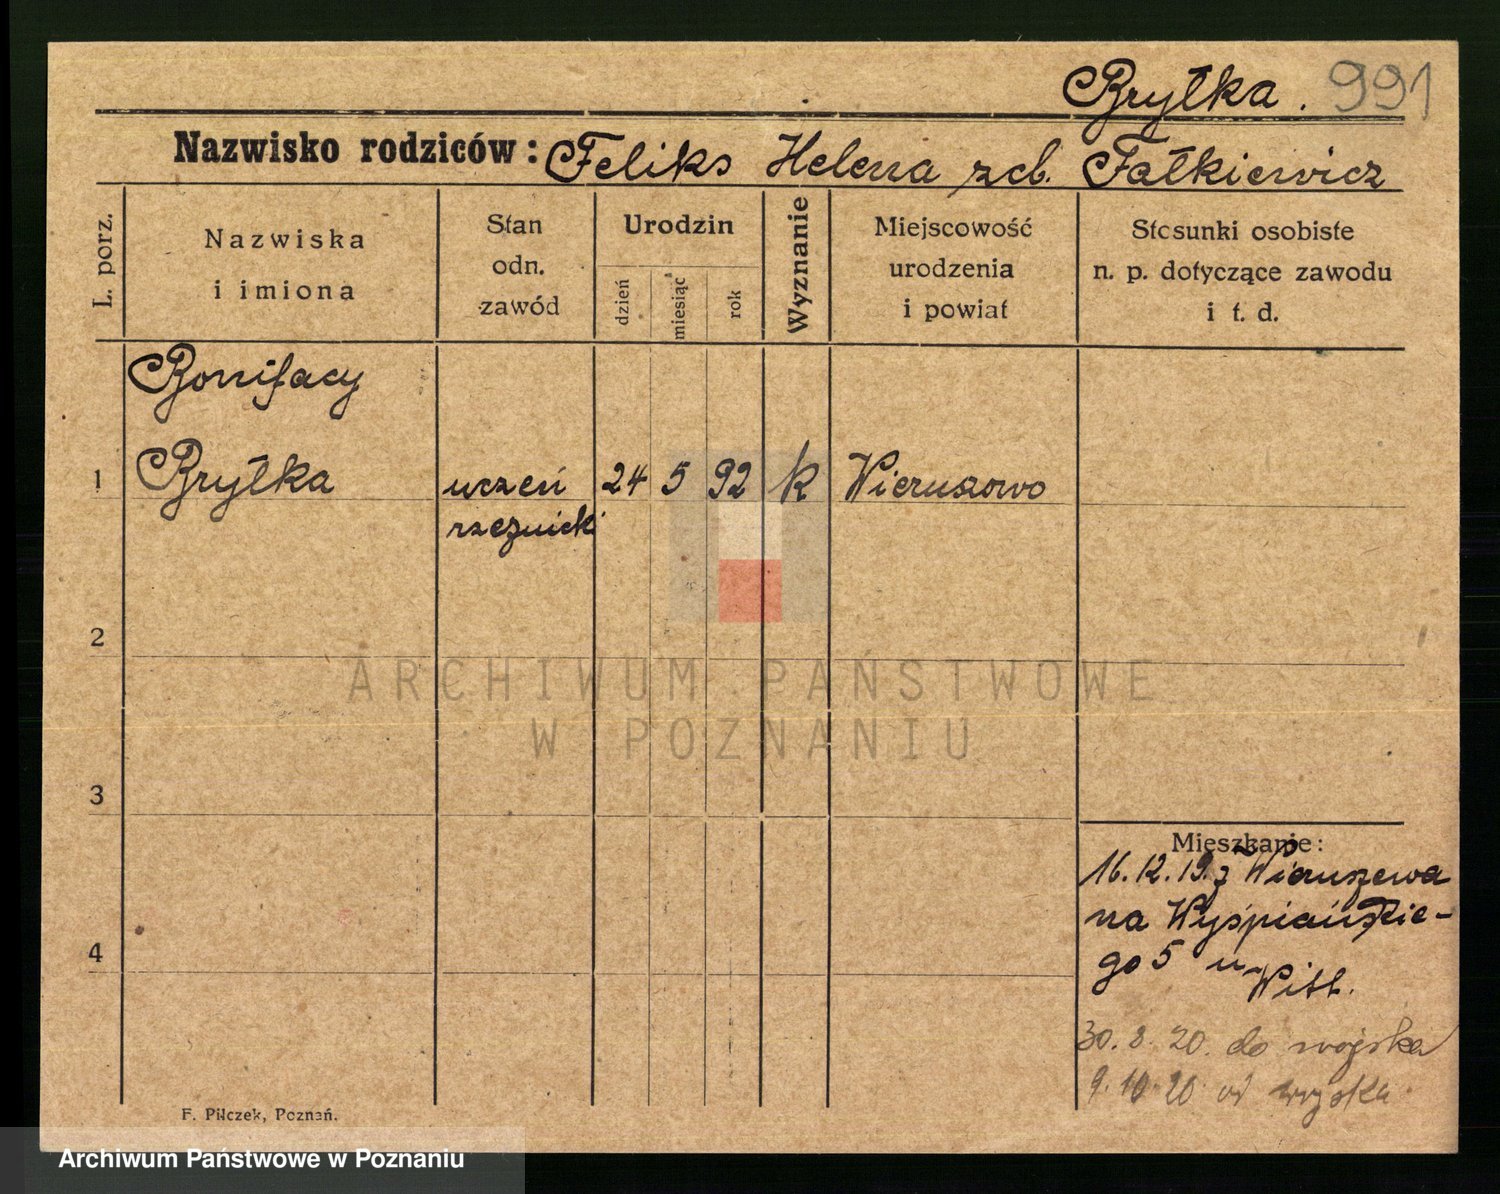 Bryłka. 991
Nazwisko rodziców: Feliks Helena zcb. Fałkiewicz
L. porz.
Nazwiska
i imiona
Stan
odn.
zawód
Urodzin
dzień
miesiąc
rok
Wyznanie
Miejscowość
urodzenia
i powiat
Stosunki osobiste
n. p. dotyczące zawodu
i t. d.
Bonifacy
1 Bryłka uczeń 24 5 92 k Wieruszowo
rzeznicki
2
3
4
Mieszkanie:
16.12.19. z Wieruszewa
na Wyśpiańskie-
go 5 u Witt.
30. 8. 20. do wojska
9. 10. 20 od wojska
F. Pilczek, Poznań.
ARCHIWUM PAŃSTWOWE
W POZNANIU
Archiwum Państwowe w Poznaniu